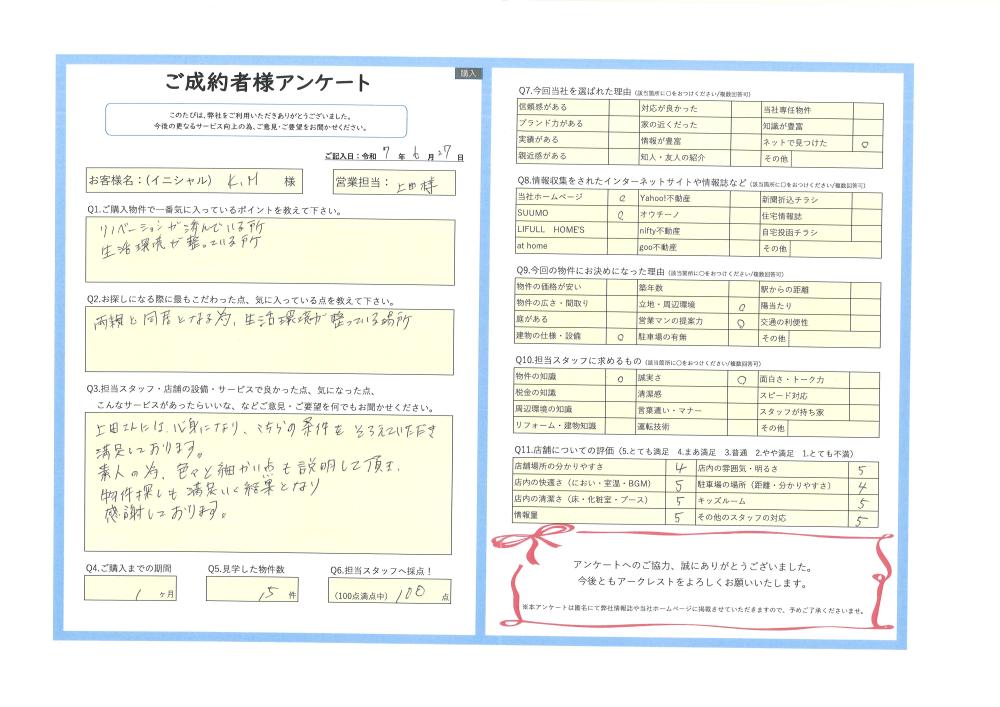 購入
ご成約者様アンケート
このたびは、弊社をご利用いただきありがとうございました。
今後の更なるサービス向上の為、ご意見・ご要望をお聞かせください。
ご記入日：令和 7 年 6 月 27 日
お客様名：(イニシャル) K.M 様
営業担当： 上田様
Q1.ご購入物件で一番気に入っているポイントを教えて下さい。
リノベーションが済んでいる所
生活環境が整っている所
Q2.お探しになる際に最もこだわった点、気に入っている点を教えて下さい。
両親と同居となる為、生活環境が整っている場所
Q3.担当スタッフ・店舗の設備・サービスで良かった点、気になった点、
こんなサービスがあったらいいな、などご意見・ご要望を何でもお聞かせください。
上田さんには、心身になり、こちらの条件をそろえていただき
満足しております。
素人の為、色々と細かい点も説明して頂き、
物件探しも満足いく結果となり
感謝しております。
Q4.ご購入までの期間
1 ヶ月
Q5.見学した物件数
15 件
Q6.担当スタッフへ採点！
(100点満点中) 100 点
Q7.今回当社を選ばれた理由 (該当箇所に○をおつけください/複数回答可)
信頼感がある 対応が良かった 当社専任物件
ブランド力がある 家の近くだった 知識が豊富
実績がある 情報が豊富 ネットで見つけた ○
親近感がある 知人・友人の紹介 その他
Q8.情報収集をされたインターネットサイトや情報誌など (該当箇所に○をおつけください/複数回答可)
当社ホームページ ○ Yahoo!不動産 新聞折込チラシ
SUUMO ○ オウチーノ 住宅情報誌
LIFULL HOME'S nifty不動産 自宅投函チラシ
at home goo不動産 その他
Q9.今回の物件にお決めになった理由 (該当箇所に○をおつけください/複数回答可)
物件の価格が安い 築年数 駅からの距離
物件の広さ・間取り 立地・周辺環境 ○ 陽当たり
庭がある 営業マンの提案力 ○ 交通の利便性
建物の仕様・設備 ○ 駐車場の有無 その他
Q10.担当スタッフに求めるもの (該当箇所に○をおつけください/複数回答可)
物件の知識 ○ 誠実さ ○ 面白さ・トーク力
税金の知識 清潔感 スピード対応
周辺環境の知識 言葉遣い・マナー スタッフが持ち家
リフォーム・建物知識 運転技術 その他
Q11.店舗についての評価（5.とても満足 4.まあ満足 3.普通 2.やや満足 1.とても不満）
店舗場所の分かりやすさ 4 店内の雰囲気・明るさ 5
店内の快適さ（におい・室温・BGM） 5 駐車場の場所（距離・分かりやすさ） 4
店内の清潔さ（床・化粧室・ブース） 5 キッズルーム 5
情報量 5 その他のスタッフの対応 5
アンケートへのご協力、誠にありがとうございました。
今後ともアークレストをよろしくお願いいたします。
※本アンケートは匿名にて弊社情報誌や当社ホームページに掲載させていただきますので、予めご了承くださいませ。